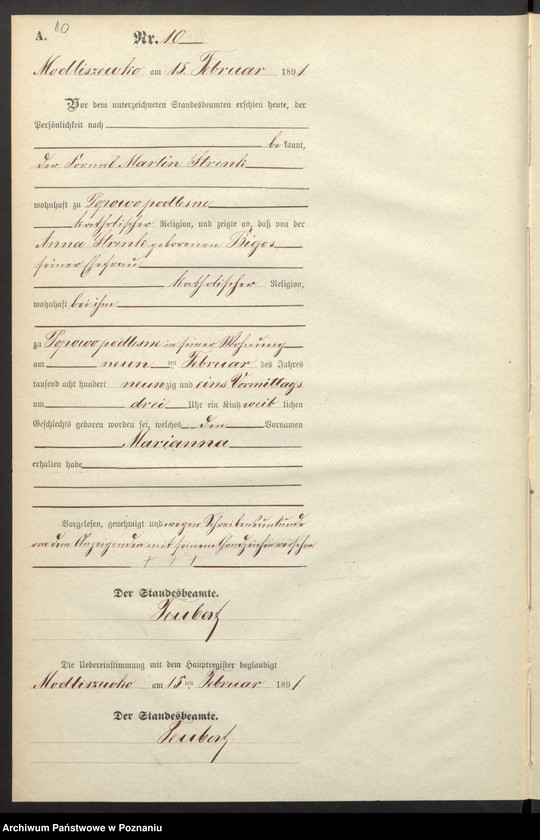 A. 10
Nr. 10
Modliszewko am 15. Februar 1891
Vor dem unterzeichneten Standesbeamten erschien heute, der
Persönlichkeit nach
bekannt,
der Fornal Martin Strenk
wohnhaft zu Popowo podlesne
katholischer Religion, und zeigte an, daß von der
Anna Strenk geborenen Bigos
seiner Ehefrau
katholischer Religion,
wohnhaft bei ihm
zu Popowo podlesne in seiner Wohnung
am neun ten Februar des Jahres
tausend acht hundert neunzig und eins Vormittags
um drei Uhr ein Kind weib lichen
Geschlechts geboren worden sei, welches den Vornamen
Marianna
erhalten habe
Vorgelesen, genehmigt und wegen Schreibensunkunde
von dem Anzeigenden mit seinem Handzeichen versehen
+ + +
Der Standesbeamte.
Teubert
Die Uebereinstimmung mit dem Hauptregister beglaubigt
Modliszewko am 15ten Februar 1891
Der Standesbeamte.
Teubert
Archiwum Państwowe w Poznaniu